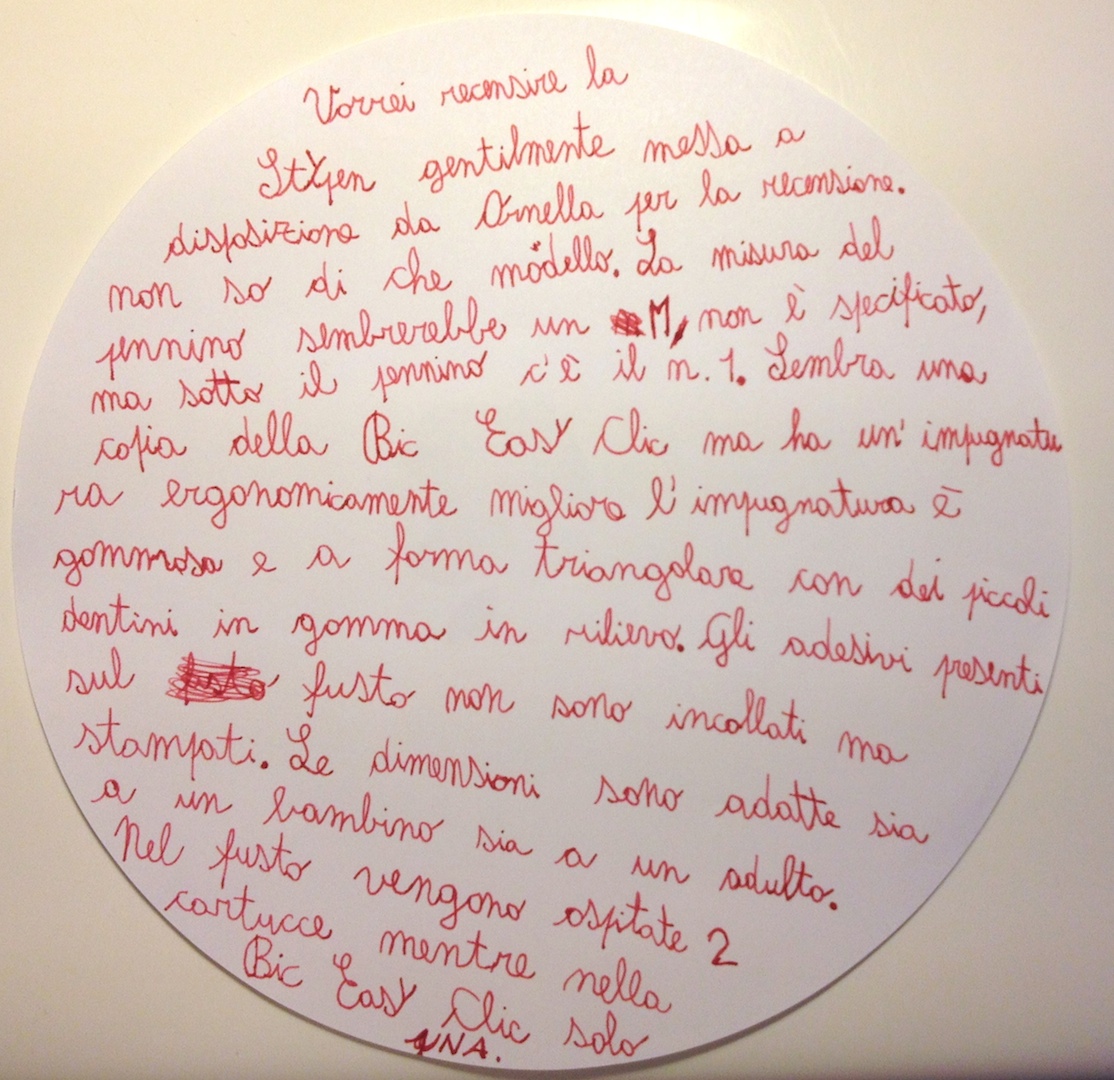 Vorrei recensire la
StYpen gentilmente messa a
disposizione da Ornella per la recensione.
non so di che modello. La misura del
pennino sembrerebbe un M, non è specificato,
ma sotto il pennino c'è il n. 1. Sembra una
copia della Bic Easy Clic ma ha un'impugnatu
ra ergonomicamente migliore l'impugnatura è
gommosa e a forma triangolare con dei piccoli
dentini in gomma in rilievo. Gli adesivi presenti
sul fusto fusto non sono incollati ma
stampati. Le dimensioni sono adatte sia
a un bambino sia a un adulto.
Nel fusto vengono ospitate 2
cartucce mentre nella
Bic Easy Clic solo
UNA.